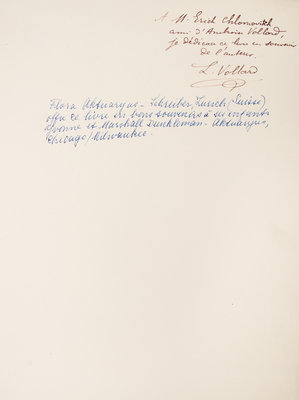 A M. Erich Chlomovitch
ami d'Ambroise Vollard,
je dédicace ce livre en souvenir
de l'auteur.
L. Vollard
Flora Aktuaryus - Schreiber, Zurich (Suisse)
offre ce livre en bons souvenirs à ses enfants
Yvonne et Marshall Dunkleman - Aktuaryus,
Chicago/Milwaukee.